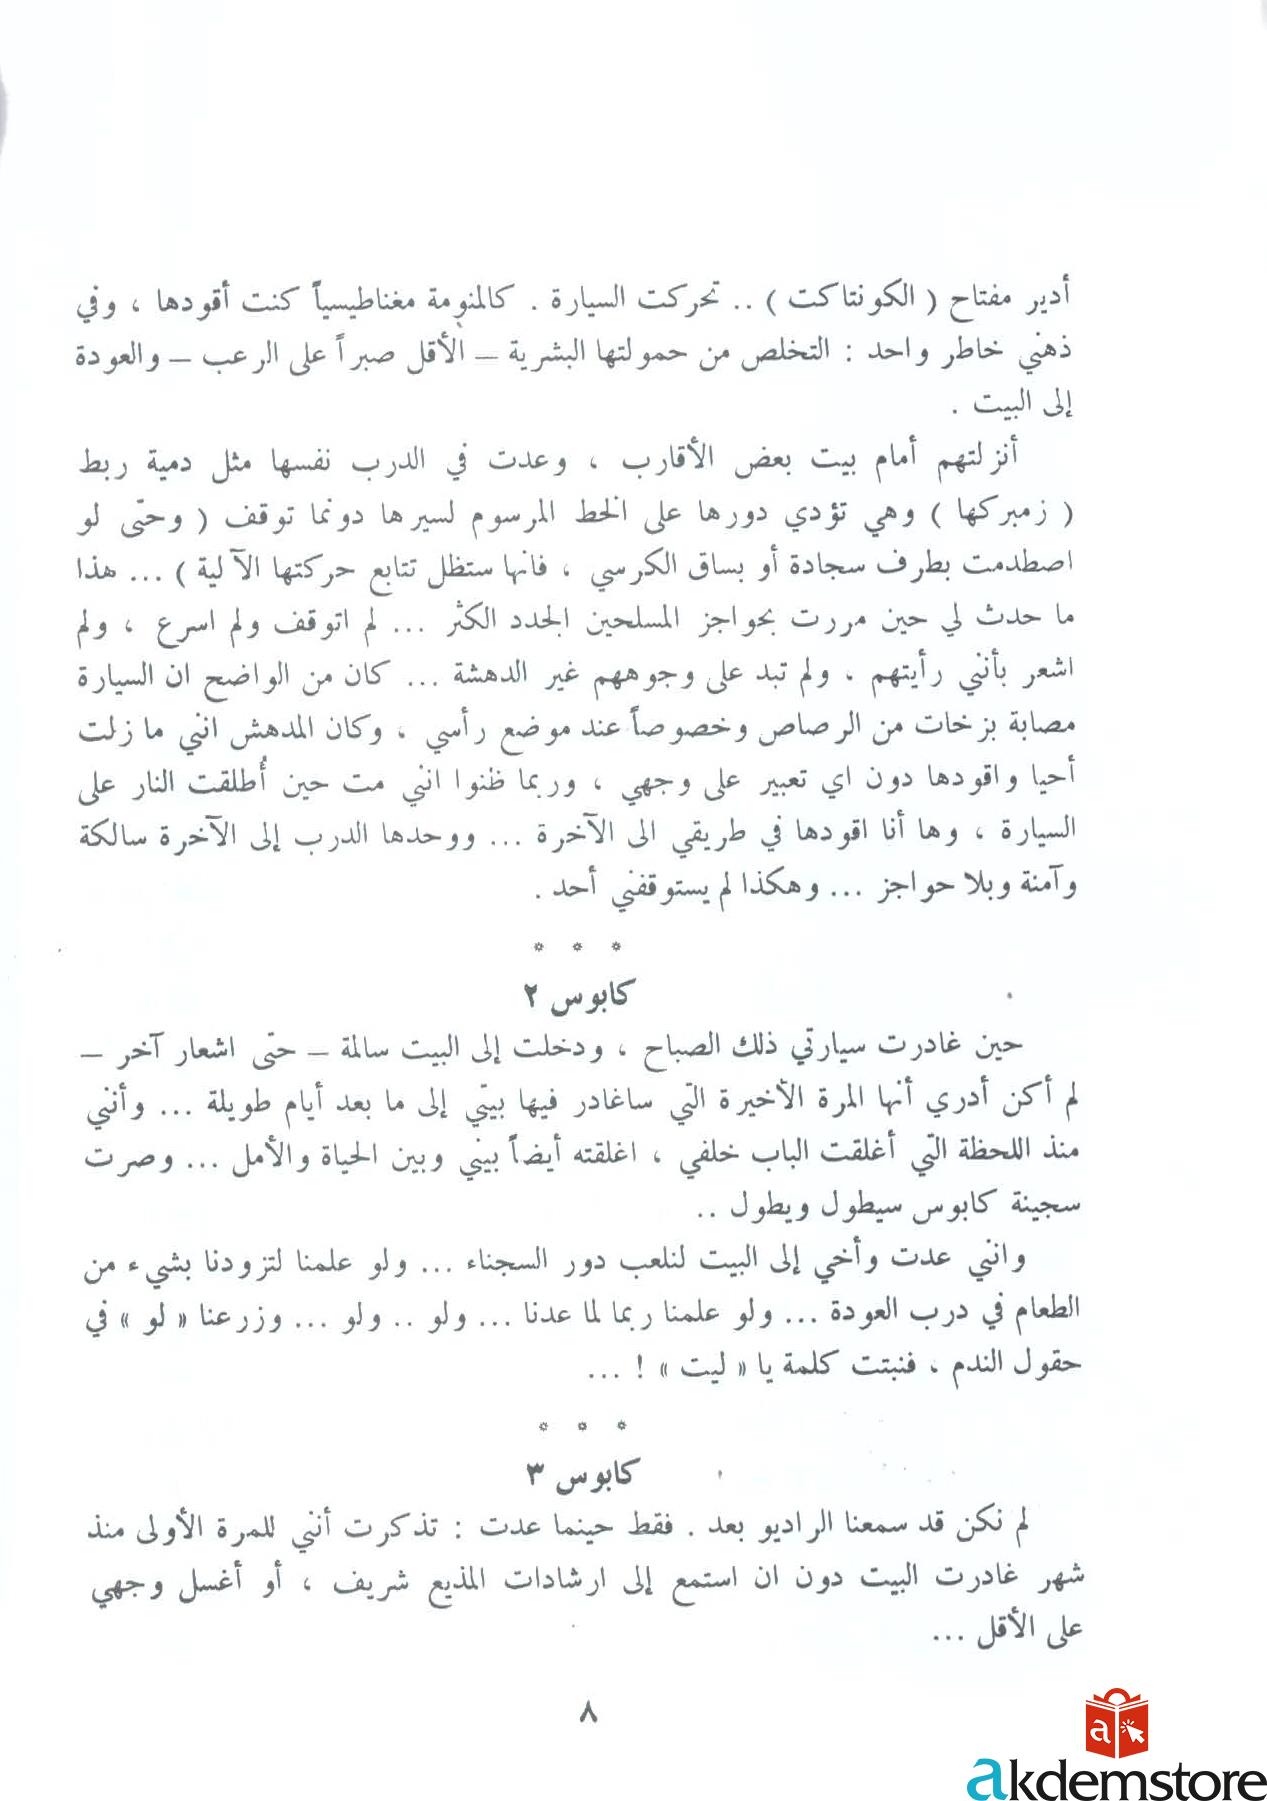 أدير مفتاح ( الكونتاكت ) .. تحركت السيارة . كالمنومة مغناطيسياً كنت أقودها ، وفي
ذهني خاطر واحد : التخلص من حمولتها البشرية – الأقل صبراً على الرعب – والعودة
إلى البيت .
أنزلتهم أمام بيت بعض الأقارب ، وعدت في الدرب نفسها مثل دمية ربط
( زمبركها ) وهي تؤدي دورها على الخط المرسوم لسيرها دونما توقف ( وحتى لو
اصطدمت بطرف سجادة أو بساق الكرسي ، فانها ستظل تتابع حركتها الآلية ) ... هذا
ما حدث لي حين مررت بحواجز المسلحين الجدد الكثر ... لم اتوقف ولم اسرع ، ولم
اشعر بأنني رأيتهم ، ولم تبد على وجوههم غير الدهشة ... كان من الواضح ان السيارة
مصابة بزخات من الرصاص وخصوصاً عند موضع رأسي ، وكان المدهش انني ما زلت
أحيا واقودها دون اي تعبير على وجهي ، وربما ظنوا انني مت حين أُطلقت النار على
السيارة ، وها أنا اقودها في طريقي الى الآخرة ... ووحدها الدرب إلى الآخرة سالكة
وآمنة وبلا حواجز ... وهكذا لم يستوقفني أحد .
* * *
كابوس ٢
حين غادرت سيارتي ذلك الصباح ، ودخلت إلى البيت سالمة – حتى اشعار آخر –
لم أكن أدري أنها المرة الأخيرة التي ساغادر فيها بيتي إلى ما بعد أيام طويلة ... وأنني
منذ اللحظة التي أغلقت الباب خلفي ، اغلقته أيضاً بيني وبين الحياة والأمل ... وصرت
سجينة كابوس سيطول ويطول ..
وانني عدت وأخي إلى البيت لنلعب دور السجناء ... ولو علمنا لتزودنا بشيء من
الطعام في درب العودة ... ولو علمنا ربما لما عدنا ... ولو .. ولو ... وزرعنا « لو » في
حقول الندم ، فنبتت كلمة يا « ليت » ! ...
* * *
كابوس ٣
لم نكن قد سمعنا الراديو بعد . فقط حينما عدت : تذكرت أنني للمرة الأولى منذ
شهر غادرت البيت دون ان استمع إلى ارشادات المذيع شريف ، أو أغسل وجهي
على الأقل ...
٨
a
akdemstore